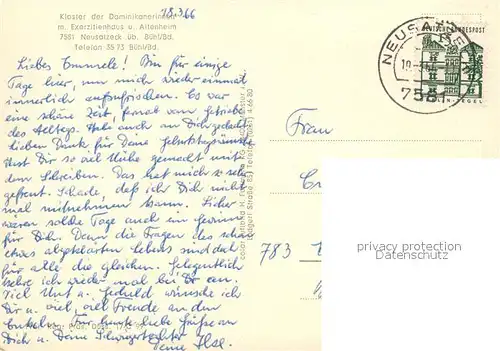 18.3.66
Kloster der Dominikanerinnen
m. Exerzitienhaus u. Altenheim
7581 Neusatzeck üb. Bühl/Bd.
Telefon 3573 Bühl/Bd.
Liebes Emmele! Bin für einige
Tage hier, um mich wieder einmal
innerlich aufzufrischen. Es war
eine schöne Zeit, fernab vom Getriebe
des Alltags. Habe auch an Dich gedacht
lieben Dank für Deine Geburtstagswünsche
Hast Dir so viel Mühe gemacht mit
dem Schreiben. Das hat mich so sehr
gefreut. Schade, daß ich Dich nicht
mal mitnehmen kann. Sicher
wären solche Tage auch ein Gewinn
für Dich. Denn die Fragen des schon
etwas abgeklärten Lebens sind doch
für alle die gleichen. Gelegentlich
kehre ich wieder mal bei Dir an.
Viel Mut u. Geduld wünsche ich
Dir u. viel, viel Freude an den
Enkeln. Für heute liebe Grüße an
Dich u. Deine Schwiegertochter
Deine Ilse.
NEUSATZECK
7581
DEUTSCHE BUNDESPOST
TEGEL
Frau
783
privacy protection
watermark